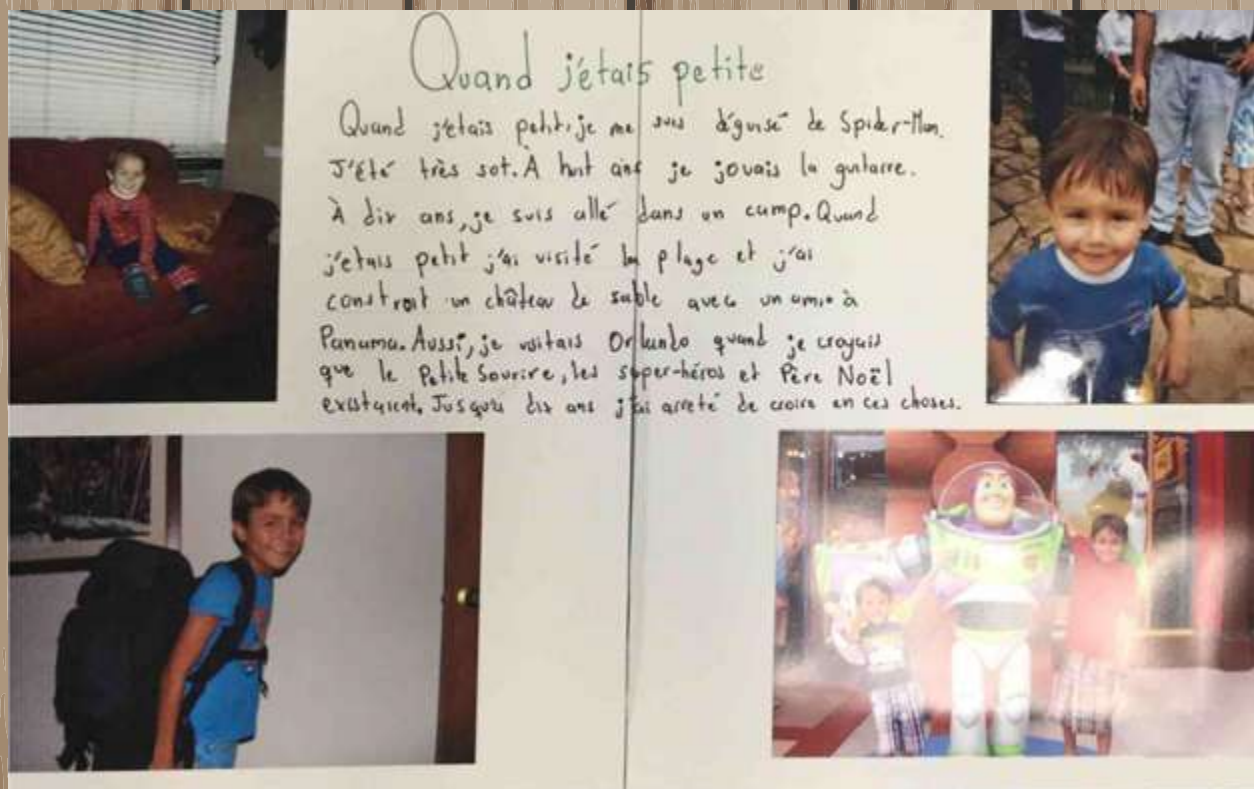 Quand j'étais petite
Quand j'étais petit, je me suis déguisé de Spider-Man.
J'été très sot. À huit ans je jouais la guitarre.
À dix ans, je suis allé dans un camp. Quand
j'étais petit j'ai visité la plage et j'ai
construit un château de sable avec un amie à
Panama. Aussi, je visitais Orlando quand je croyais
que le Petite Sourire, les super-héros et Père Noël
existaient. Jusqu'a dix ans j'ai arreté de croire en ces choses.